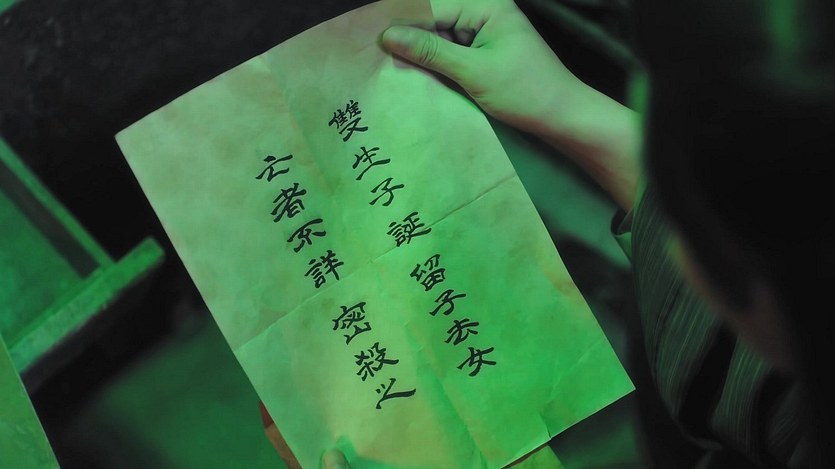 雙生子誕 留子去女
亡者不詳 密殺之